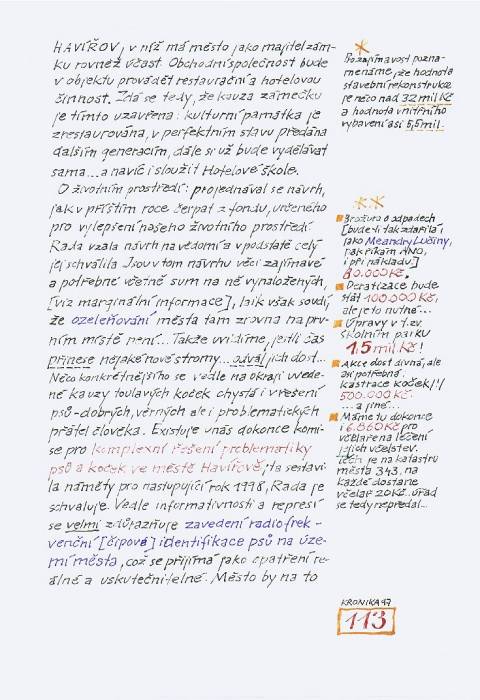 HAVÍŘOV, v níž má město jako majitel zám-
ku rovněž účast. Obchodní společnost bude
v objektu provádět restaurační a hotelovou
činnost. Zdá se tedy, že kauza zámečku
je tímto uzavřena: kulturní památka je
zrestaurována, v perfektním stavu předána
dalším generacím, dále si už bude vydělávat
sama...a navíc i sloužit Hotelové škole.
O životním prostředí: projednával se návrh,
jak v příštím roce čerpat z fondu, určeného
pro vylepšení našeho životního prostředí.
Rada vzala návrh na vědomí a v podstatě celý
jej schválila. Jsou v tom návrhu věci zajímavé
a potřebné včetně sum na ně vynaložených,
[viz marginální informace], laik však soudí,
že ozeleňování města tam zrovna na prv-
ním místě není... Takže uvidíme, jestli čas
přinese nějaké nové stromy...odvál jich dost...
Něco konkrétnějšího se vedle na okraji uvede-
né kauzy toulavých koček chystá i v řešení
psů-dobrých, věrných ale i problematických
přátel člověka. Existuje u nás dokonce komi-
se pro komplexní řešení problematiky
psů a koček ve městě Havířově, ta sestavi-
la náměty pro nastupující rok 1998, Rada je
schvaluje. Vedle informativnosti a represí
se velmi zdůrazňuje zavedení radiofrek-
venční [čipové] identifikace psů na úze-
mí města, což se přijímá jako opatření re-
álné a uskutečnitelné. Město by na to
*
Pro zajímavost pozna-
menáme, že hodnota
stavební rekonstrukce
je něco nad 32 mil Kč
a hodnota vnitřního
vybavení asi 5,5 mil.
**
Brožura o odpadech
[bude-li tak zdařilá i
jako Meandry Lučiny,
pak říkám ANO,
i při nákladu]
80.000 Kč.
Deratizace bude
stát 100.000 Kč,
ale je to nutné...
Úpravy v t.zv.
školním parku
1.5 mil Kč!
Akce dost divná, ale
asi potřebná:
kastrace koček!!/
500.000 Kč.
...a jiné...
Máme tu dokonce
i 6.860 Kč pro
včelaře na léčení
jejich včelstev.
Těch je na katastru
města 343, na
každé dostane
včelař 20 Kč...úřad
se tedy nepředal...
KRONIKA 97
113